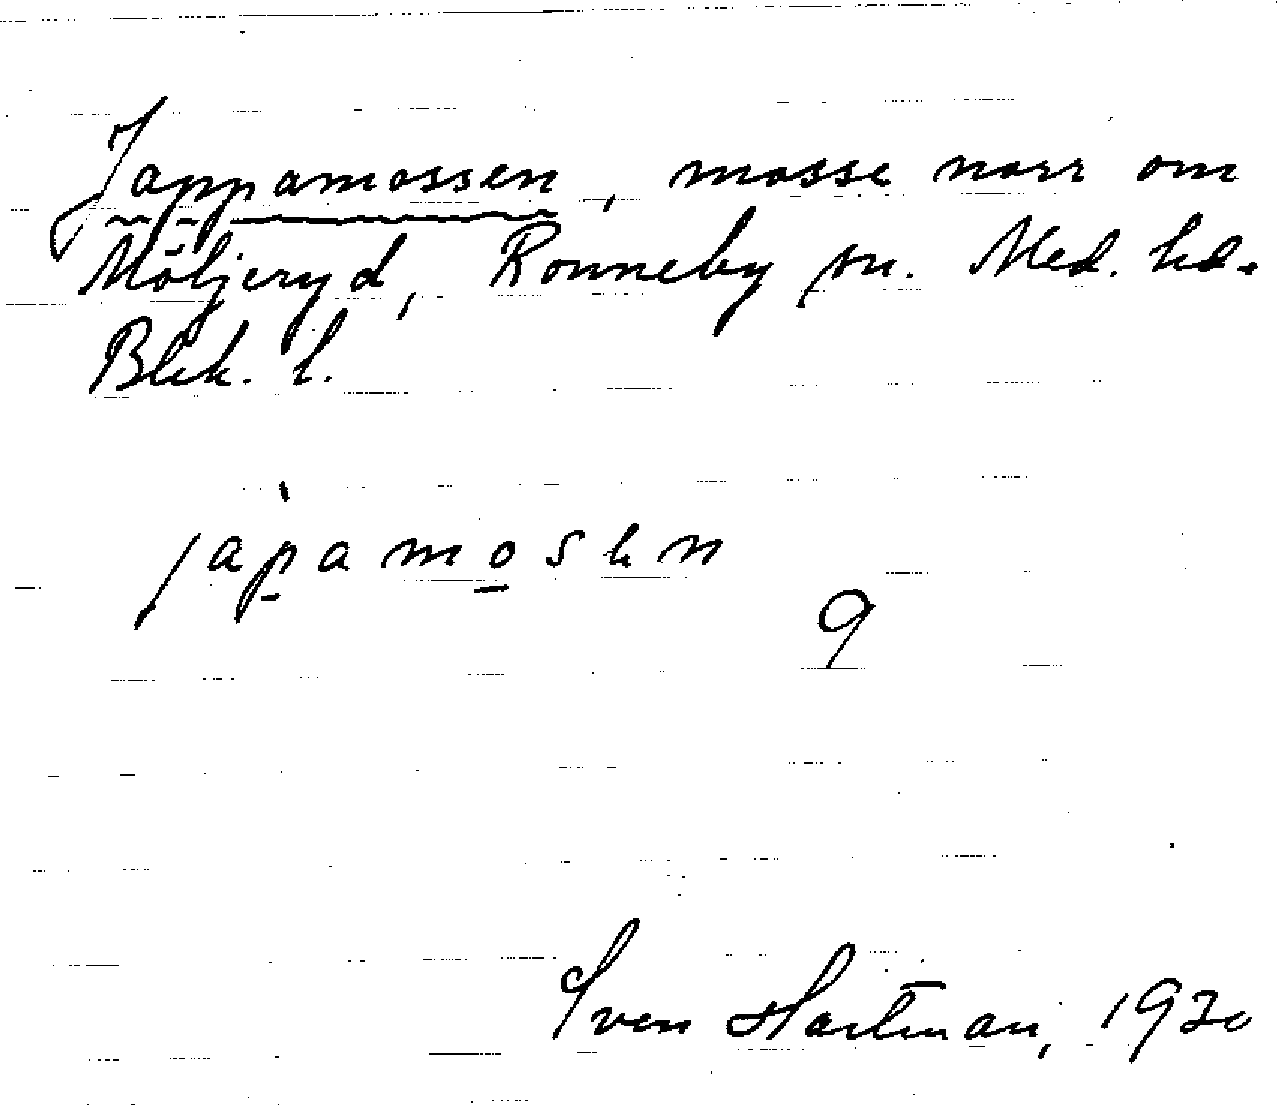 Jappamossen, mosse norr om
Möljeryd, Ronneby sn. Med. hd.
Blek. l.
japamosen
9
Sven Hartman, 1930